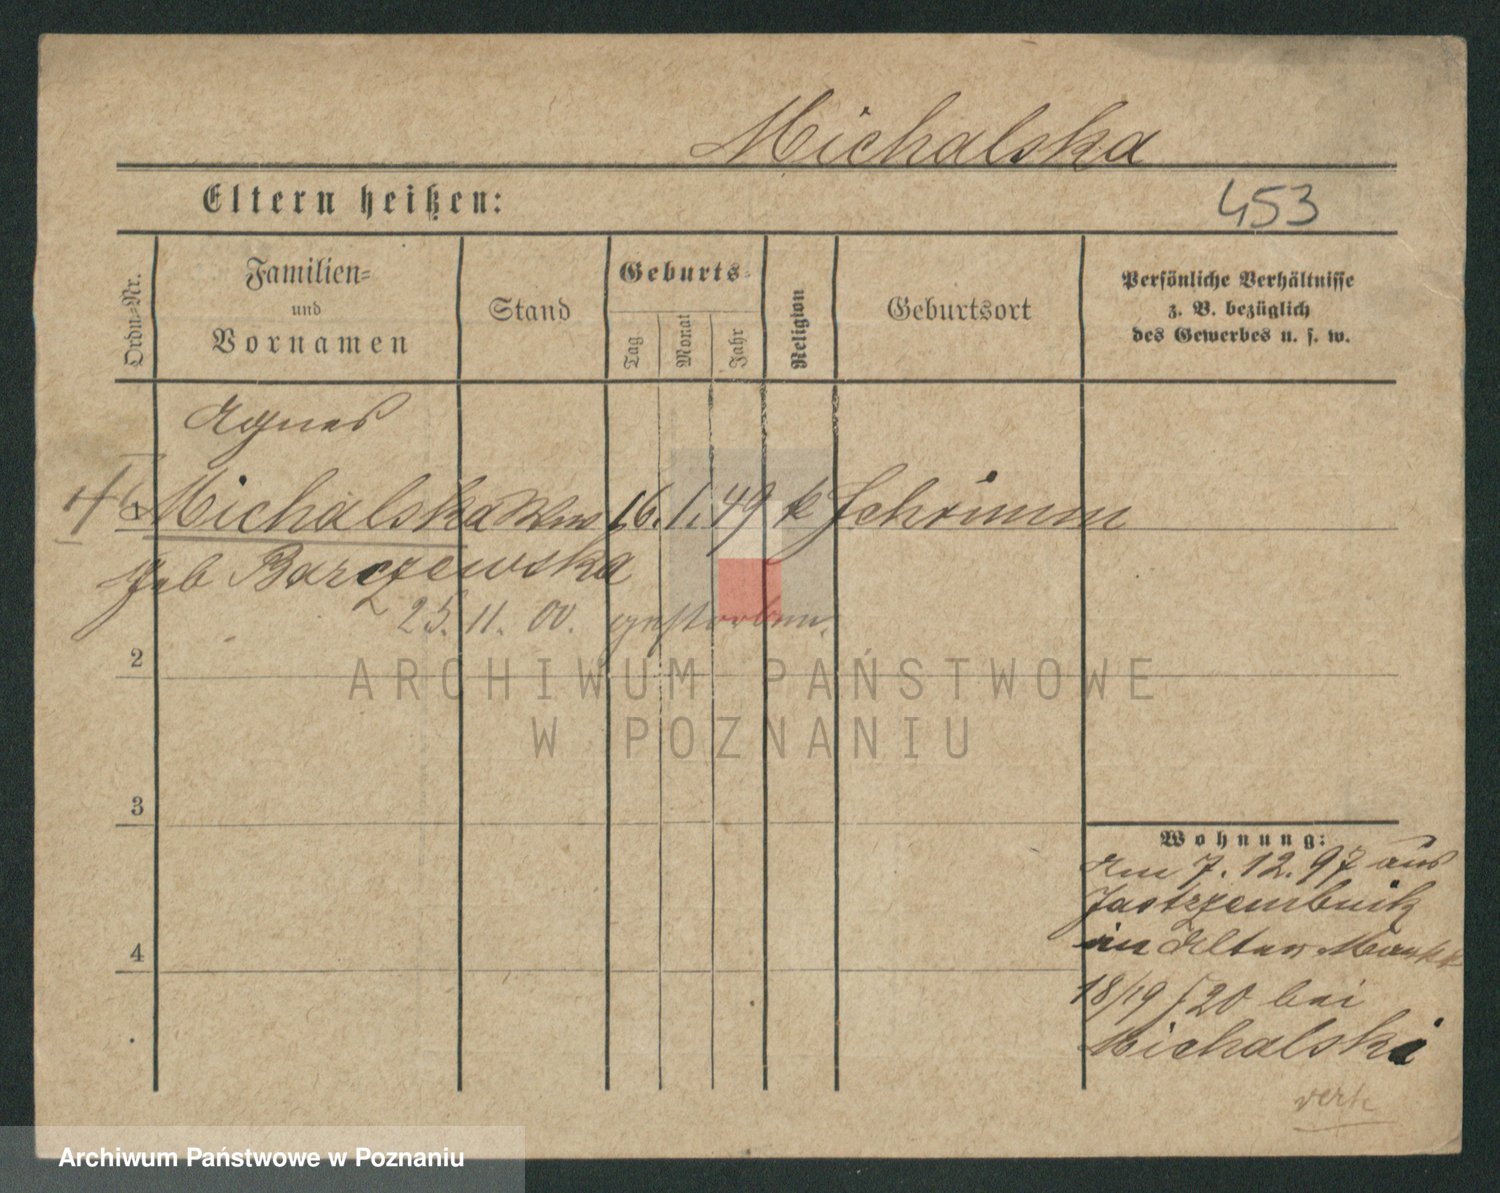 Michalska
Eltern heißen:
453
Ordn=Nr.
Familien=
und
Vornamen
Stand
Geburts=
Tag
Monat
Jahr
Religion
Geburtsort
Persönliche Verhältnisse
z. B. bezüglich
des Gewerbes u. s. w.
Agnes
Michalska Ww 16. 1. 49 k Schrimm
geb Barczewska
25. 11. 00. gestorben.
2
3
4
Wohnung:
Am 7. 12. 97 aus
Jastrzembnik
in Alter Markt
18/19 bei
Michalski
ARCHIWUM PAŃSTWOWE
W POZNANIU
Archiwum Państwowe w Poznaniu